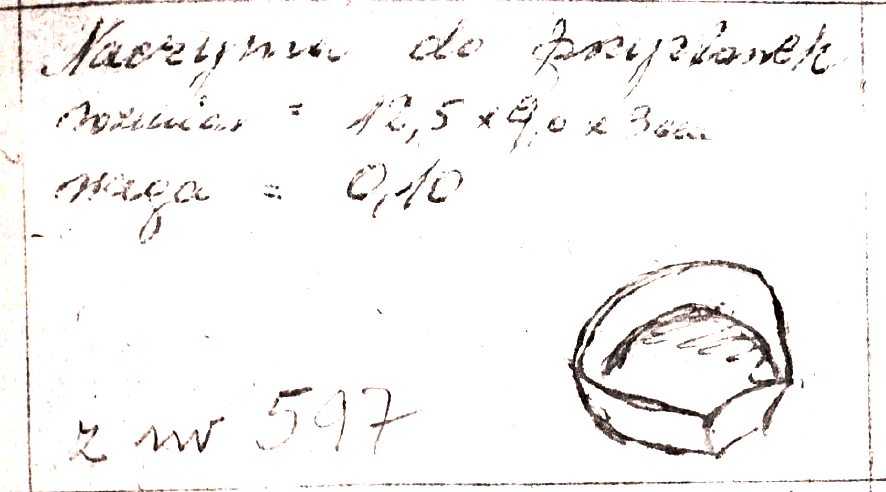 Naczynia do przystawek
rozmiar = 12,5 x 9,0 x 3 cm
waga = 0,10
z nr 597